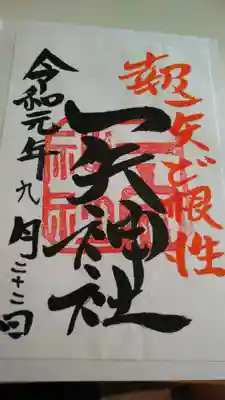 報一矢ど根性
一矢神社
令和元年九月二十二日